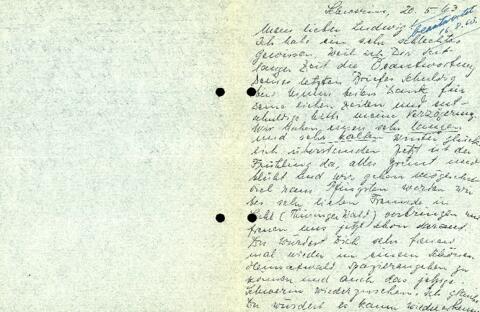 Schwerin, 20.5.63
beantwortet
16.8.63.
Mein lieber Ludwig!
Ich habe ein sehr schlechtes
Gewissen, weil ich Dir seit
langer Zeit die Beantwortung
Deines letzten Briefes schuldig
bin. Meinen besten Dank für
Deine lieben Zeilen und ent-
schuldige bitte meine Verzögerung.
Wir haben einen sehr langen
und sehr kalten Winter glück-
lich überstanden. Jetzt ist der
Frühling da, alles grünt und
blüht und wir gehen möglichst
viel raus. Pfingsten werden wir
bei sehr lieben Freunden in
(Thüringer Wald) verbringen und
freuen uns jetzt schon darauf.
Du würdest Dich sehr freuen
mal wieder in einem schönen
Heimatwald spazierengehen zu
können und auch das jetzige
Schwerin wiederzusehen. Ich glaube
Du würdest es kaum wiedererkennen